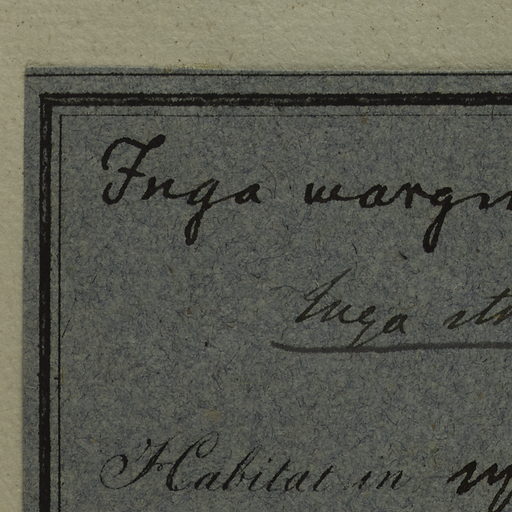 Inga margin
Inga
Habitat in